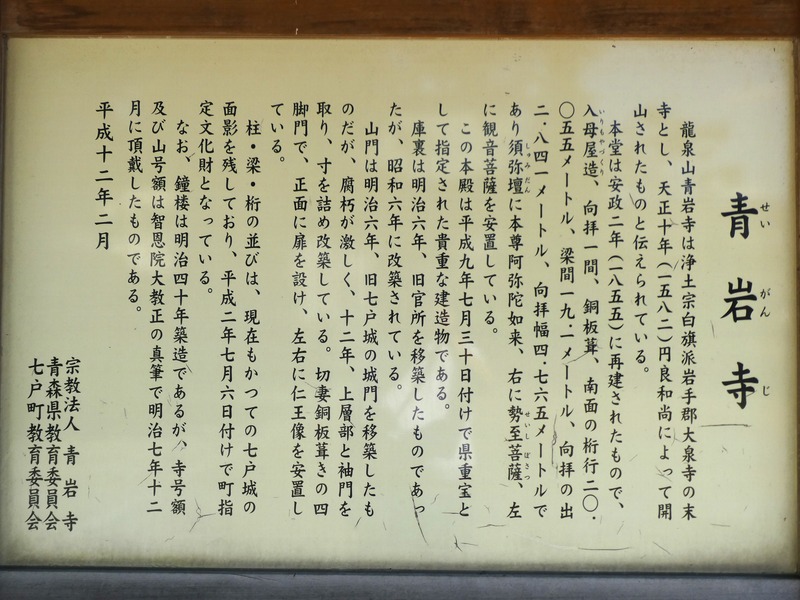 青岩寺
せいがんじ
龍泉山青岩寺は浄土宗白旗派岩手郡大泉寺の末
寺とし、天正十年（一五八二）円良和尚によって開
山されたものと伝えられている。
本堂は安政二年（一八五五）に再建されたもので、
入母屋造、向拝一間、銅板葺、南面の桁行二〇・
いりもやづくり
〇五五メートル、梁間一九・一メートル、向拝の出
二・八四一メートル、向拝幅四・七六五メートルで
あり須弥壇に本尊阿弥陀如来、右に勢至菩薩、左
しゅみだん
せいしぼさつ
に観音菩薩を安置している。
この本殿は平成九年七月三十日付けで県重宝と
して指定された貴重な建造物である。
庫裏は明治六年、旧官所を移築したものであっ
たが、昭和六年に改築されている。
山門は明治六年、旧七戸城の城門を移築したも
のだが、腐朽が激しく、十二年、上層部と袖門を
取り、寸を詰め改築している。切妻銅板葺きの四
脚門で、正面に扉を設け、左右に仁王像を安置し
ている。
柱・梁・桁の並びは、現在もかつての七戸城の
面影を残しており、平成二年七月六日付けで町指
定文化財となっている。
なお、鐘楼は明治四十年築造であるが、寺号額
及び山号額は智恩院大教正の真筆で明治七年十二
月に頂戴したものである。
平成十二年二月
宗教法人 青岩寺
青森県教育委員会
七戸町教育委員会